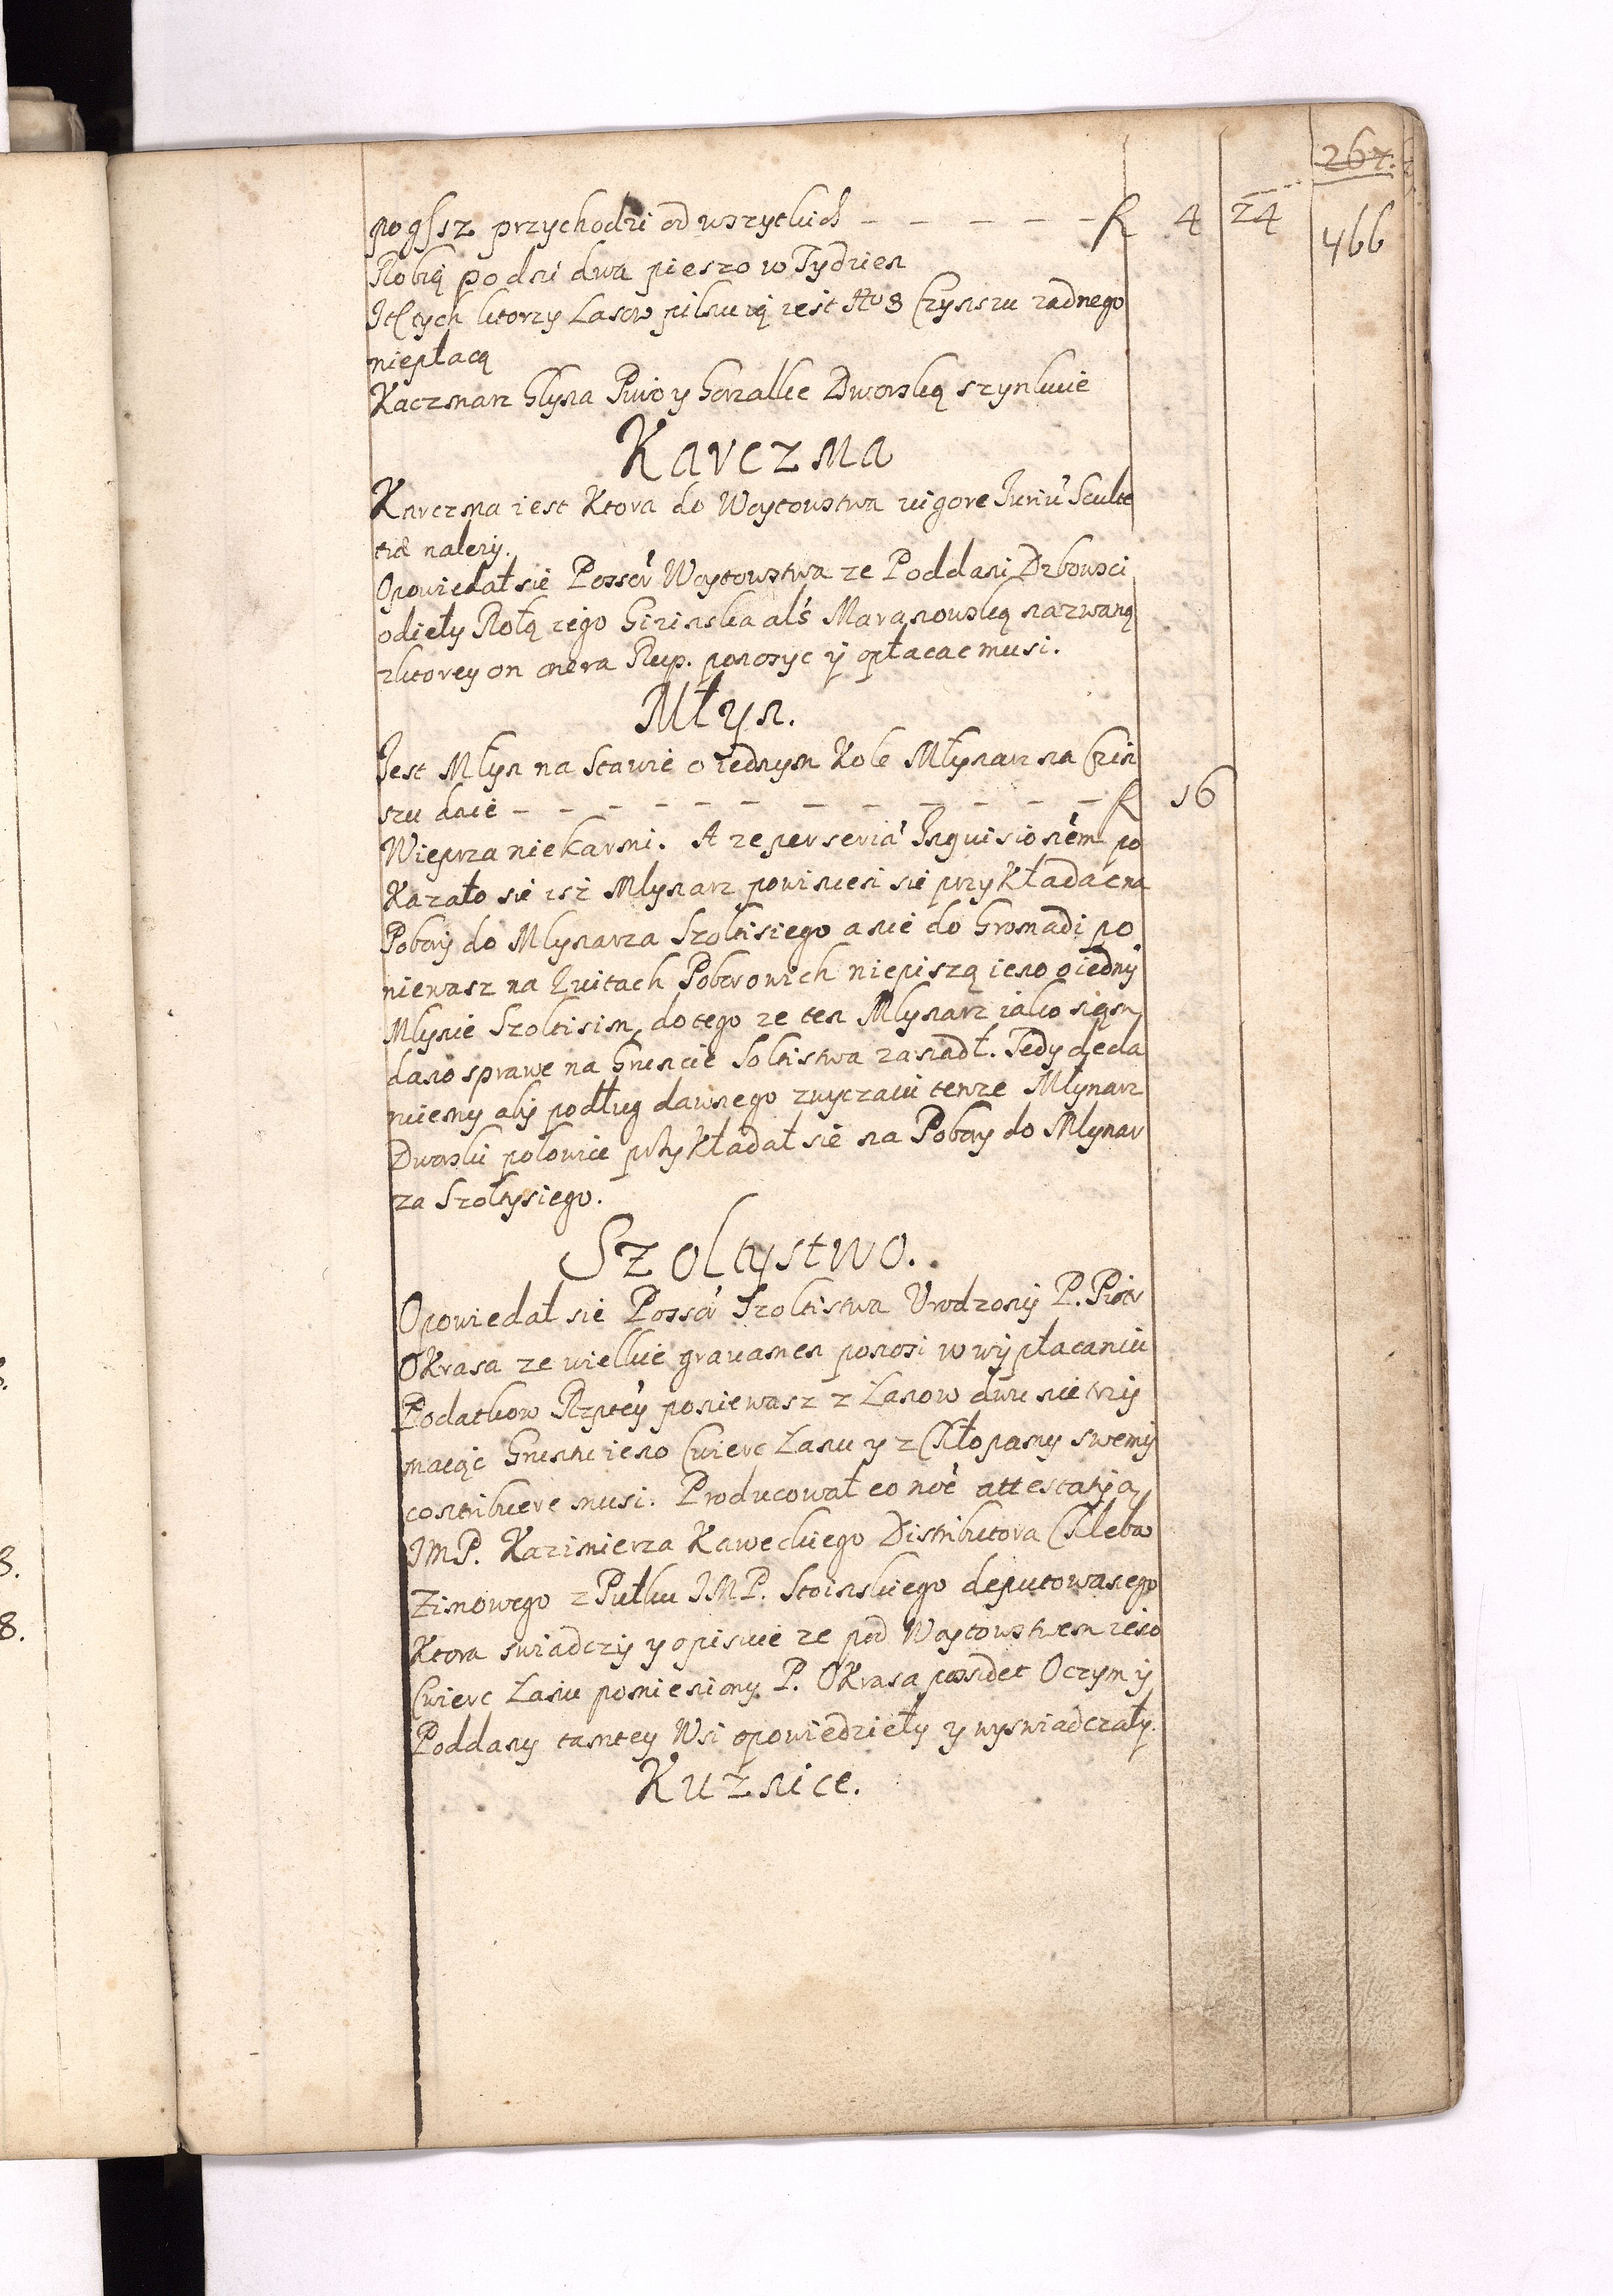 267.
466
po g sz przychodzi od wszytkich - - - - - f 4 24
Robią po dni dwa pieszo w Tydzien
It tych ktorzy Lasow pilnuią iest No 3 Czynszu zadnego
niepłacą
Kaczmarz Piwo y Gorzałke Dworską szynkuie
Karczma
Karczma iest Ktora do Woytowstwa vigore Juriu Sculte
tiæ nalezy.
Opowiedał sie Possor Woytowstwa ze Poddani Dzbowsci
odieły Rolą iego als Maranowską nazwaną
zktorey on onera Reip. ponosyc ÿ opłacac musi.
Młyn.
Jest Młyn na Stawie o iednym Kole Młynarz na Czin
szu daie - - - - - - - - - - - - f 16
Wieprza niekarmi. A ze per seria Inquisionem po
Kazało sie isz Mlynarz powinien sie przykładac na
Pobory do Mlynarza Szoltisiego a nie do Gromadi po
niewasz na kwitach Poborowich niepiszą ieno o iedny
Mlynie Szoltisim, do tego ze ten Mlynarz iako
dano sprawe na Gruncie Soltistwa zasiadł. Tedy decla
ruiemy aby podług dawnego zwyczaiu tenze Młynarz
Dworski połowice przykładał sie na Pobory do Mlynar
za Szoltysiego.
Szoltystwo.
Opowiedał sie Possor Szoltistwa Urodzony P. Piotr
OKrasa ze wielkie gravamen ponosi w wypłacaniu
Podatkow Rzptey poniewasz z Lanow dwu nie trzy
maiąc Gruntu ieno Cwierc Lanu y z Chłopamy swemy
contribuere musi. Producował eo noe attestatią
JMP. Kazimierza Kaweckiego Distributora Chleba
Zimowego z Pułku JMP. Stoinskiego deputowanego
Ktora swiadczy y opisuie ze pod Woytowstwem ieno
Cwierc Lanu pomieniony P. OKrasa possidet O czym ÿ
Poddany tamtey Wsi opowiedzieły y wyswiadczały.
Kuznice.